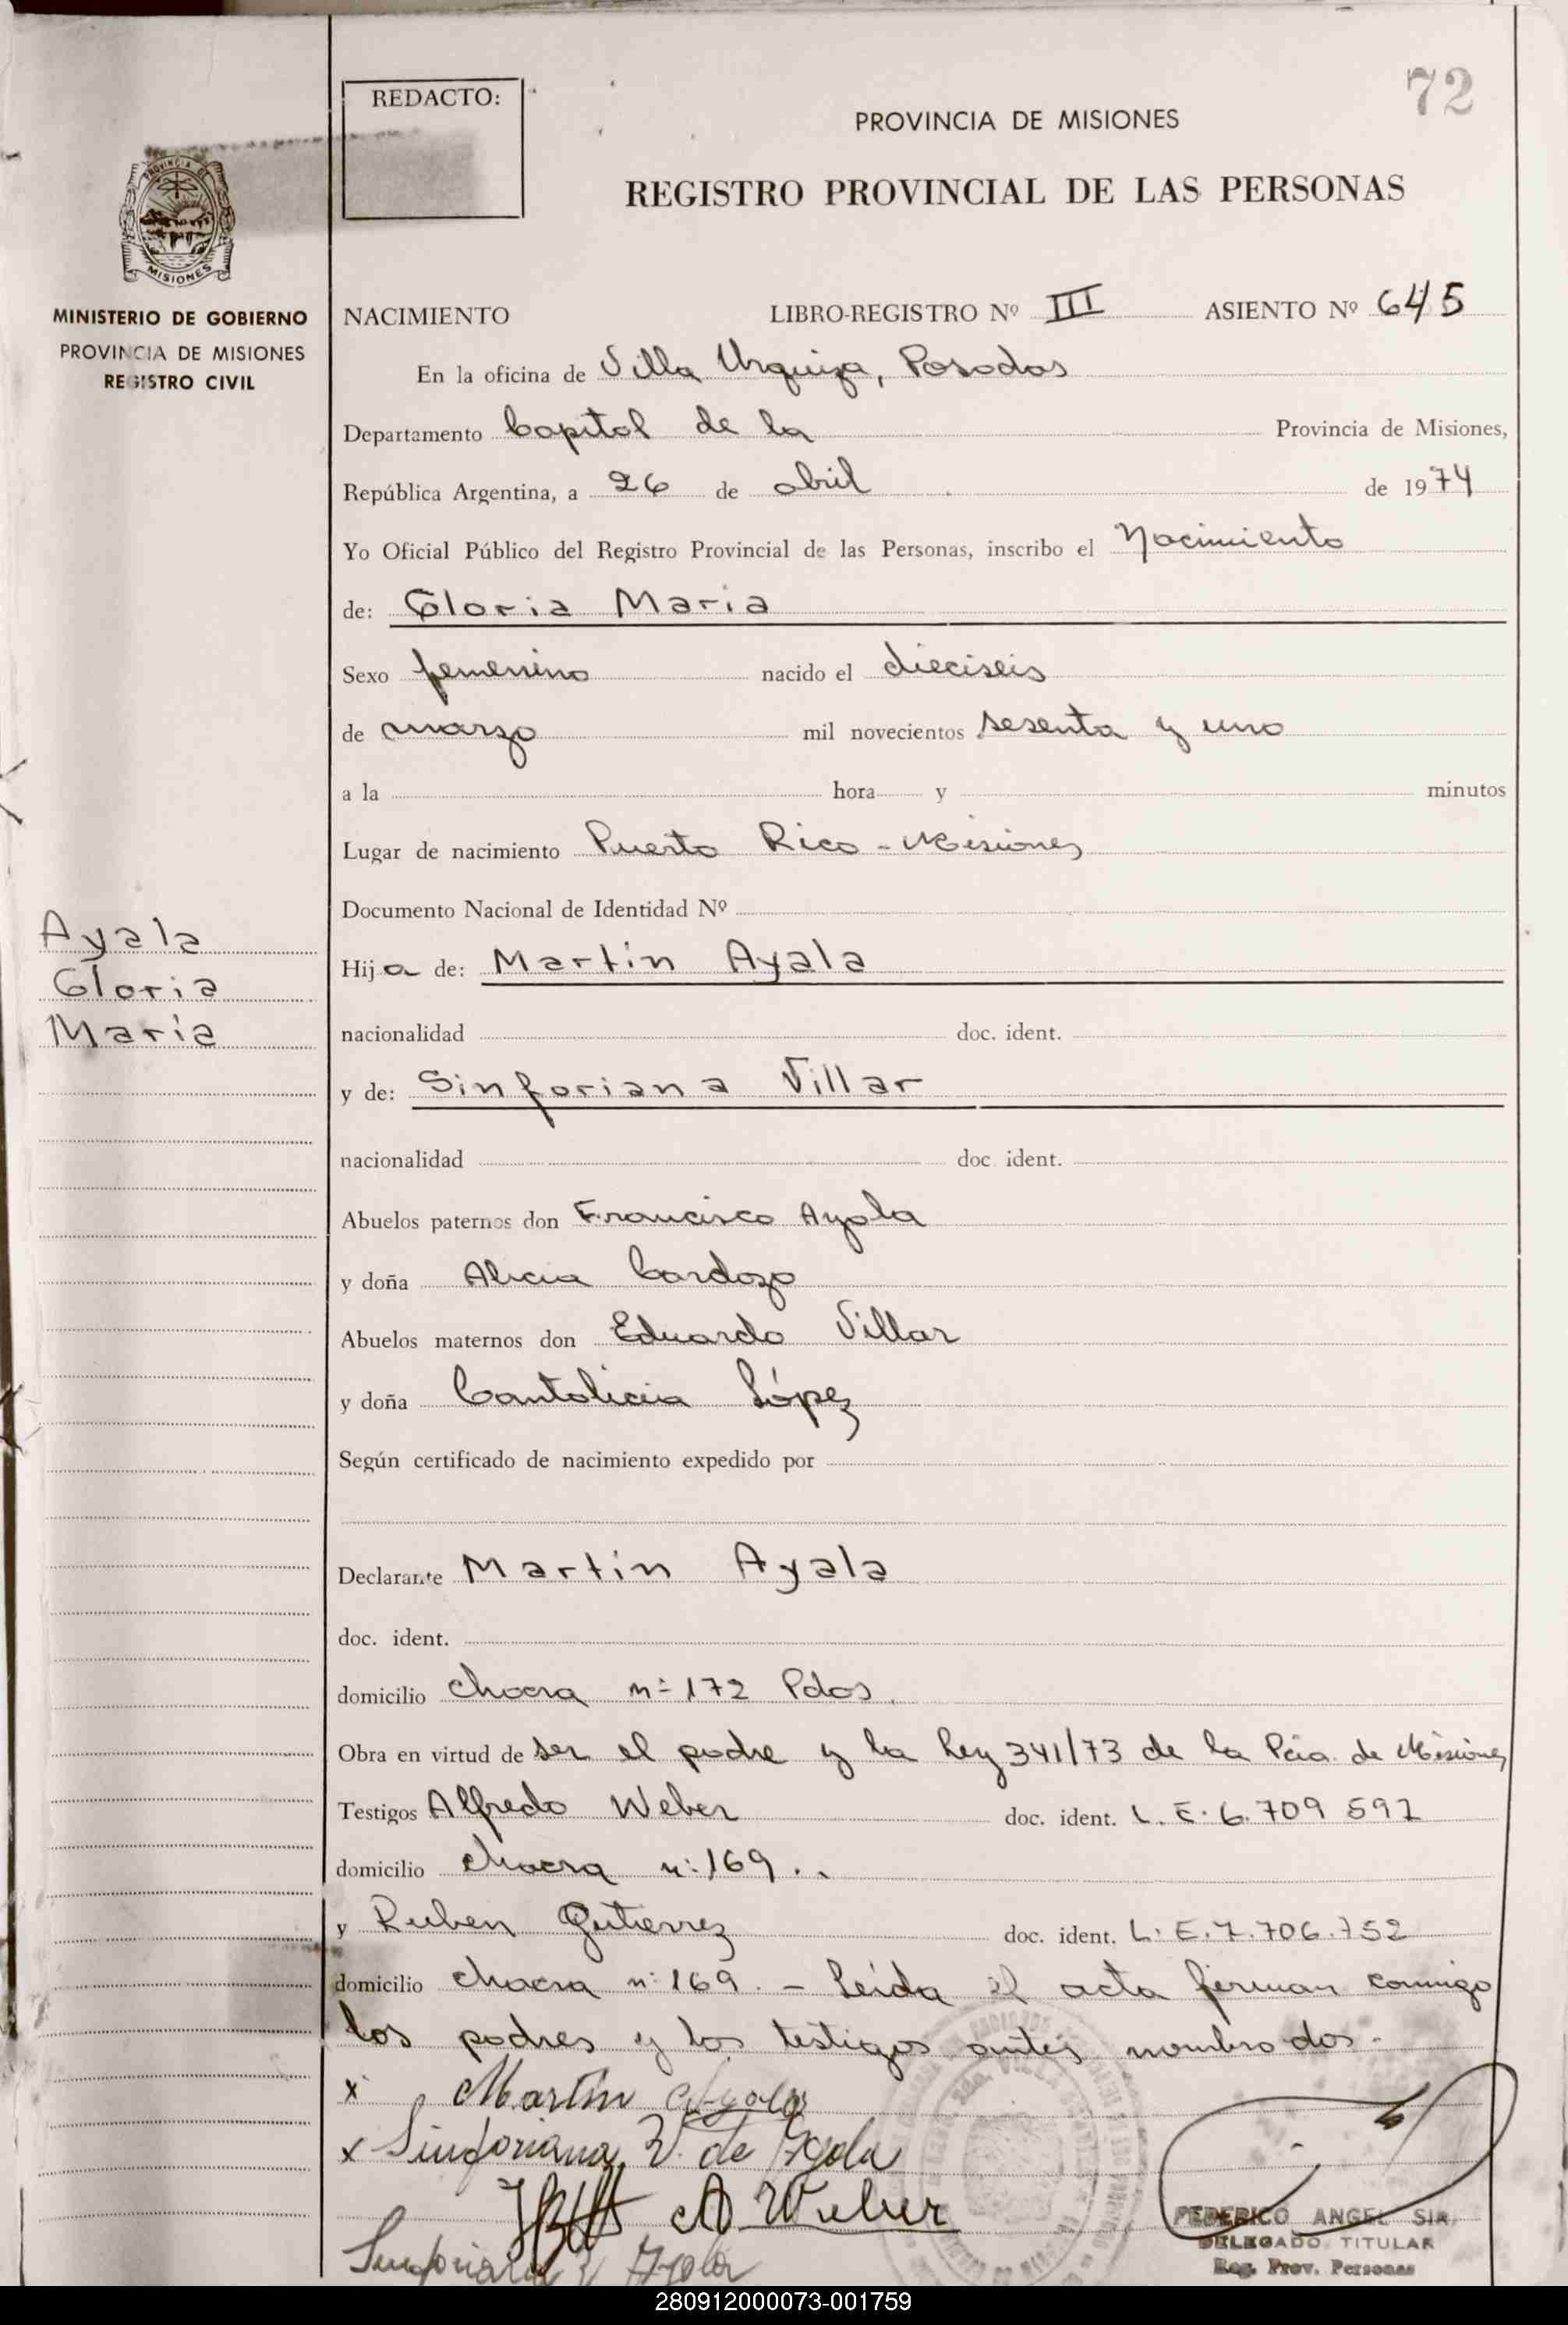 72
REDACTO:
PROVINCIA DE MISIONES
REGISTRO PROVINCIAL DE LAS PERSONAS
MISIONES
MINISTERIO DE GOBIERNO
PROVINCIA DE MISIONES
REGISTRO CIVIL
NACIMIENTO LIBRO-REGISTRO Nº III ASIENTO Nº 645
En la oficina de Villa Urquiza, Posadas
Departamento Capital de la Provincia de Misiones,
República Argentina, a 26 de abril de 1974
Yo Oficial Público del Registro Provincial de las Personas, inscribo el Nacimiento
de: Gloria Maria
Sexo femenino nacido el dieciseis
de marzo mil novecientos sesenta y uno
a la hora y minutos
Lugar de nacimiento Puerto Rico - Misiones
Documento Nacional de Identidad Nº
Ayala
Gloria
Maria
Hija de: Martin Ayala
nacionalidad doc. ident.
y de: Sinforiana Villar
nacionalidad doc. ident.
Abuelos paternos don Francisco Ayala
y doña Alicia Cardozo
Abuelos maternos don Eduardo Villar
y doña Cantolicia López
Según certificado de nacimiento expedido por
Declarante Martin Ayala
doc. ident.
domicilio chacra nº 172 Pdas.
Obra en virtud de ser el padre y la Ley 341/73 de la Pcia. de Misiones
Testigos Alfredo Weber doc. ident. L. E. 6.709 592
domicilio chacra nº 169..
y Ruben Gutierrez doc. ident. L. E. 7.706.752
domicilio chacra nº 169. - Leida el acta firman conmigo
los padres y los testigos antes nombrados.-
x Martin Ayala
x Sinforiana V. de Ayala
A Weber
Sinforiana V Ayala
FEDERICO ANGEL SIR
DELEGADO TITULAR
Reg. Prov. Personas
280912000073-001759